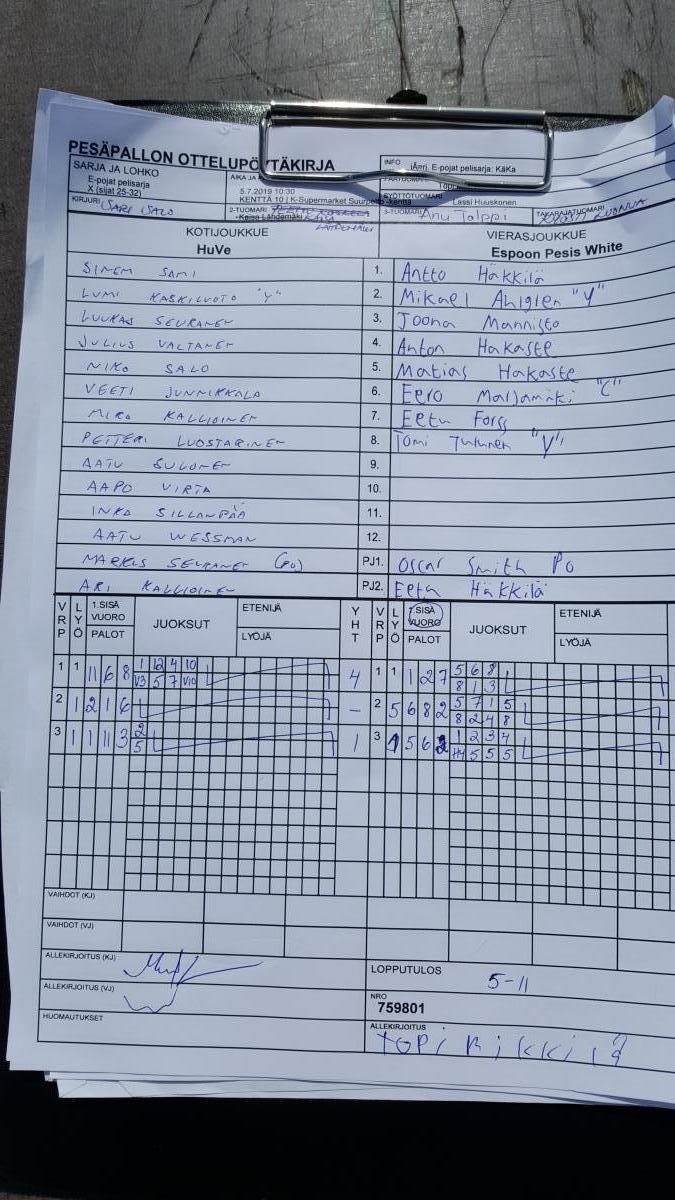 PESÄPALLON OTTELUPÖYTÄKIRJA
SARJA JA LOHKO
E-pojat pelisarja
X (sijat 25-32)
AIKA JA
5.7.2019 10:30
KENTTÄ 10 | K-Supermarket Suurpelto -kenttä
INFO
iÄrri. E-pojat pelisarja: KäKa
SYÖTTÖTUOMARI
Lassi Huuskonen
KIRJURI SARI SALO
2-TUOMARI
Kaisa Lähdemäki
3-TUOMARI Anu Talppi
TAKARAJATUOMARI
KOTIJOUKKUE
HuVe
VIERASJOUKKUE
Espoon Pesis White
SINEM SAMI 1. Antto Häkkilä
LUMI KASKILUOTO "Y" 2. Mikael Ahlgren "Y"
LUUKAS SEURANEN 3. Joona Mannisto
JULIUS VALTANEN 4. Anton Hakaste
NIKO SALO 5. Matias Hakaste
VEETI JUNNIKKALA 6. Eero Marjamäki "C"
MIRO KALLIOINEN 7. Eetu Forss
PETTERI LUOSTARINEN 8. Tomi Tuturen "V"
AATU SULONEN 9.
AAPO VIRTA 10.
INKA SILLANPÄÄ 11.
AATU WESSMAN 12.
MARKUS SEURANEN (PO) PJ1. Oscar Smith Po
ARI KALLIOINEN PJ2. Eetu Häkkilä
VRP LYÖ 1.SISÄ VUORO PALOT JUOKSUT ETENIJÄ LYÖJÄ YHT VRP LYÖ 1.SISÄ VUORO PALOT JUOKSUT ETENIJÄ LYÖJÄ
1 1 11 6 8 1 12 4 10 4 1 1 1 2 7 5 6 8
V3 5 7 V10 8 1 3
2 1 2 1 6 - 2 5 6 8 2 5 7 1 5
8 2 4 8
3 1 1 11 3 2 1 3 1 5 6 2 1 2 3 4
5 5 5 5
VAIHDOT (KJ)
VAIHDOT (VJ)
ALLEKIRJOITUS (KJ)
LOPPUTULOS 5-11
ALLEKIRJOITUS (VJ)
NRO
759801
HUOMAUTUKSET
ALLEKIRJOITUS